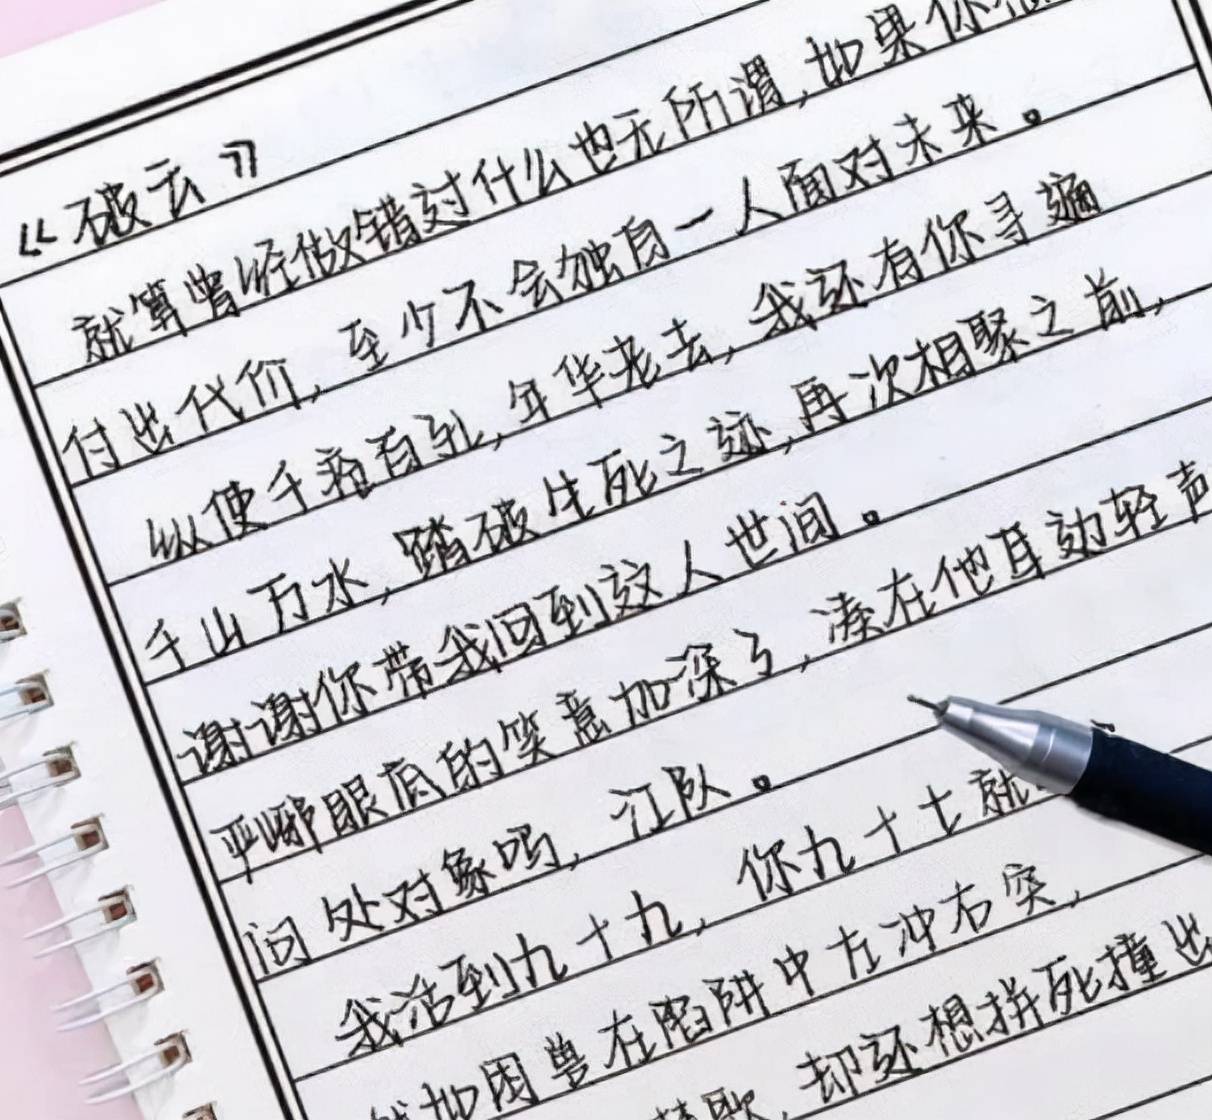 《破云》
就算曾经做错过什么也无所谓，如果你
付出代价，至少不会独自一人面对未来。
纵使千疮百孔，年华老去，我还有你寻遍
千山万水，踏破生死之迹，再次相聚之前，
谢谢你带我回到这人世间。
严峫眼底的笑意加深了，凑在他耳边轻声
问处对象吗，江队。
我活到九十九，你九十七就
如困兽在陷阱中左冲右突，
歌，却还想拼死撞出